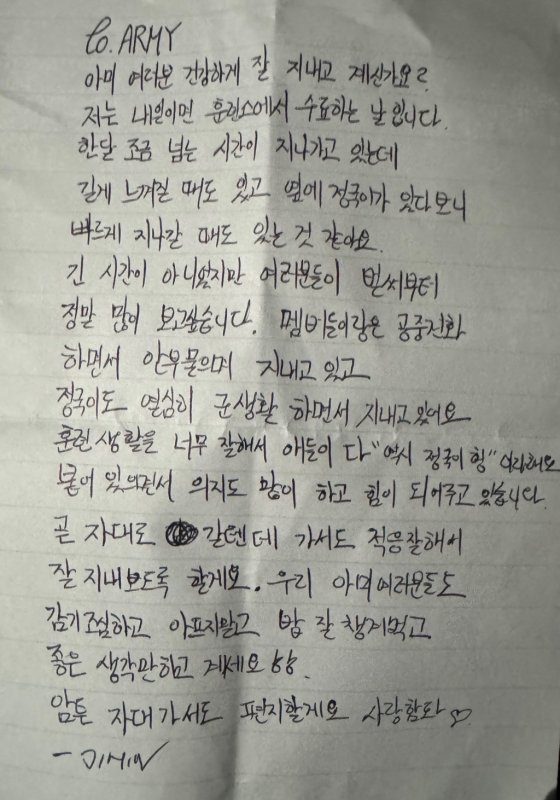 To. ARMY
아미 여러분 건강하게 잘 지내고 계신가요?
저는 내일이면 훈련소에서 수료하는 날입니다.
한달 조금 넘는 시간이 지나가고 있는데
길게 느껴질 때도 있고 옆에 정국이가 있다보니
빠르게 지나갈 때도 있는 것 같아요.
긴 시간이 아니었지만 여러분들이 벌써부터
정말 많이 보고싶습니다. 멤버들이랑은 공중전화
하면서 안부물으며 지내고 있고
정국이도 열심히 군생활 하면서 지내고 있어요
훈련생활을 너무 잘해서 애들이 다 "역시 정국이 형" 이라해요
붙어 있으면서 의지도 많이 하고 힘이 되어주고 있습니다.
곧 자대로 갈텐데 가서도 적응잘해서
잘 지내보도록 할게요. 우리 아미여러분들도
감기조심하고 아프지말고 밥 잘 챙겨먹고
좋은 생각만하고 계세요 ㅎㅎ.
암튼 자대가서도 편지할게요 사랑함돠 ♡
- JIMIN